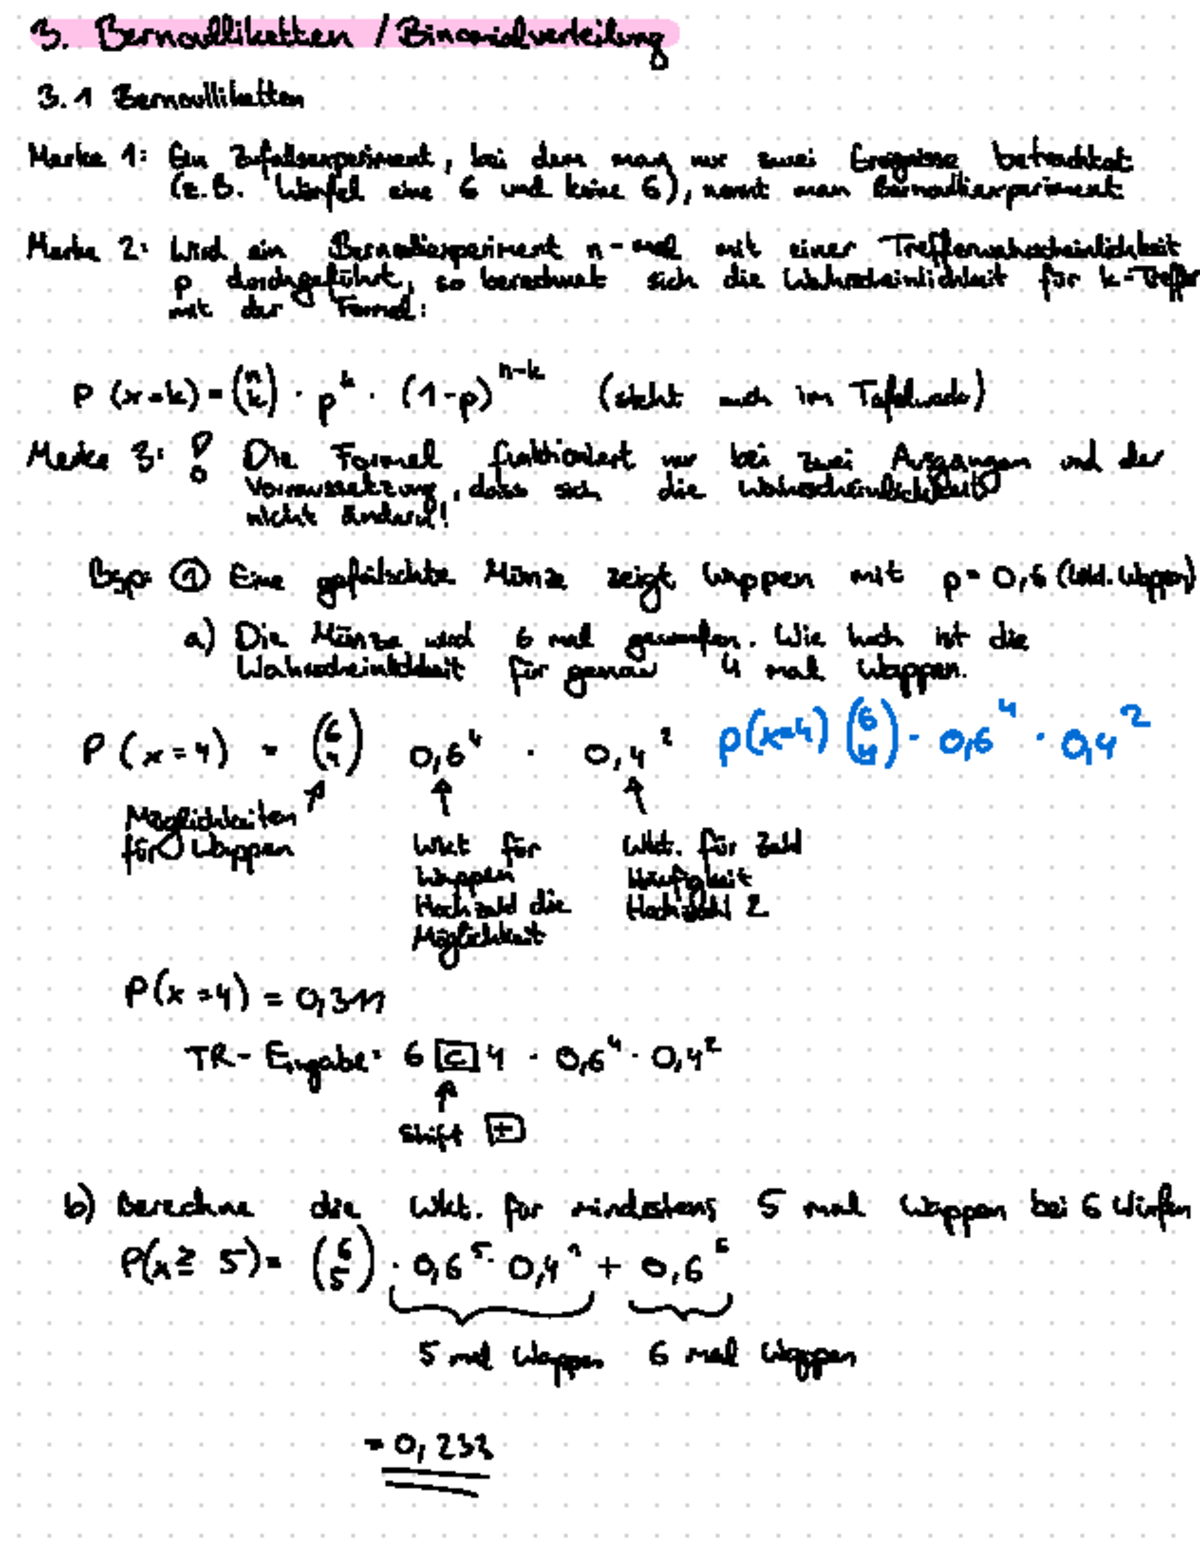 3. Bernoulliketten / Binomialverteilung
3.1 Bernoulliketten
Merke 1: Ein Zufallsexperiment, bei dem man nur zwei Ereignisse betrachtet
(z.B. Würfel eine 6 und keine 6), nennt man Bernoulliexperiment
Merke 2: Wird ein Bernoulliexperiment n-mal mit einer Trefferwahrscheinlichkeit
p durchgeführt, so berechnet sich die Wahrscheinlichkeit für k-Treffer
mit der Formel:
P (x=k) = (n k) · p^k · (1-p)^n-k (steht auch im Tafelwerk)
Merke 3: ! Die Formel funktioniert nur bei zwei Ausgängen und der
Vorraussetzung, dass sich die Wahrscheinlichkeit
nicht ändern!
Bsp: ① Eine gefälschte Münze zeigt Wappen mit p = 0,6 (Wappen)
a) Die Münze wird 6 mal geworfen. Wie hoch ist die
Wahrscheinlichkeit für genau 4 mal Wappen.
P (x=4) = (6 4) 0,6^4 · 0,4^2 P(x=4) (6 4) · 0,6^4 · 0,4^2
Möglichkeiten
für Wappen
Wkt für
Wappen
Hochzahl die
Möglichkeit
Wkt. für Zahl
Häufigkeit
Hochzahl 2
P(x=4) = 0,311
TR-Eingabe: 6 [C] 4 · 0,6^4 · 0,4^2
Shift [÷]
b) Berechne die Wkt. für mindestens 5 mal Wappen bei 6 Würfen
P(x≥5) = (6 5) · 0,6^5 · 0,4^1 + 0,6^6
5 mal Wappen 6 mal Wappen
= 0,233